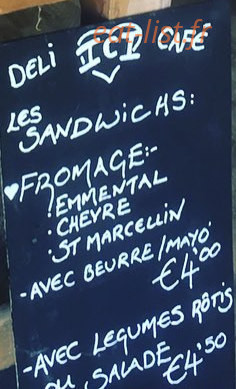 eat-list.fr
DELI ICI CAFÉ
LES
SANDWICHS:
♥FROMAGE:-
·EMMENTAL
·CHEVRE
·ST MARCELLIN
-AVEC BEURRE/MAYO
€4'00
-AVEC LEGUMES RÔTIS
OU SALADE
€4'50